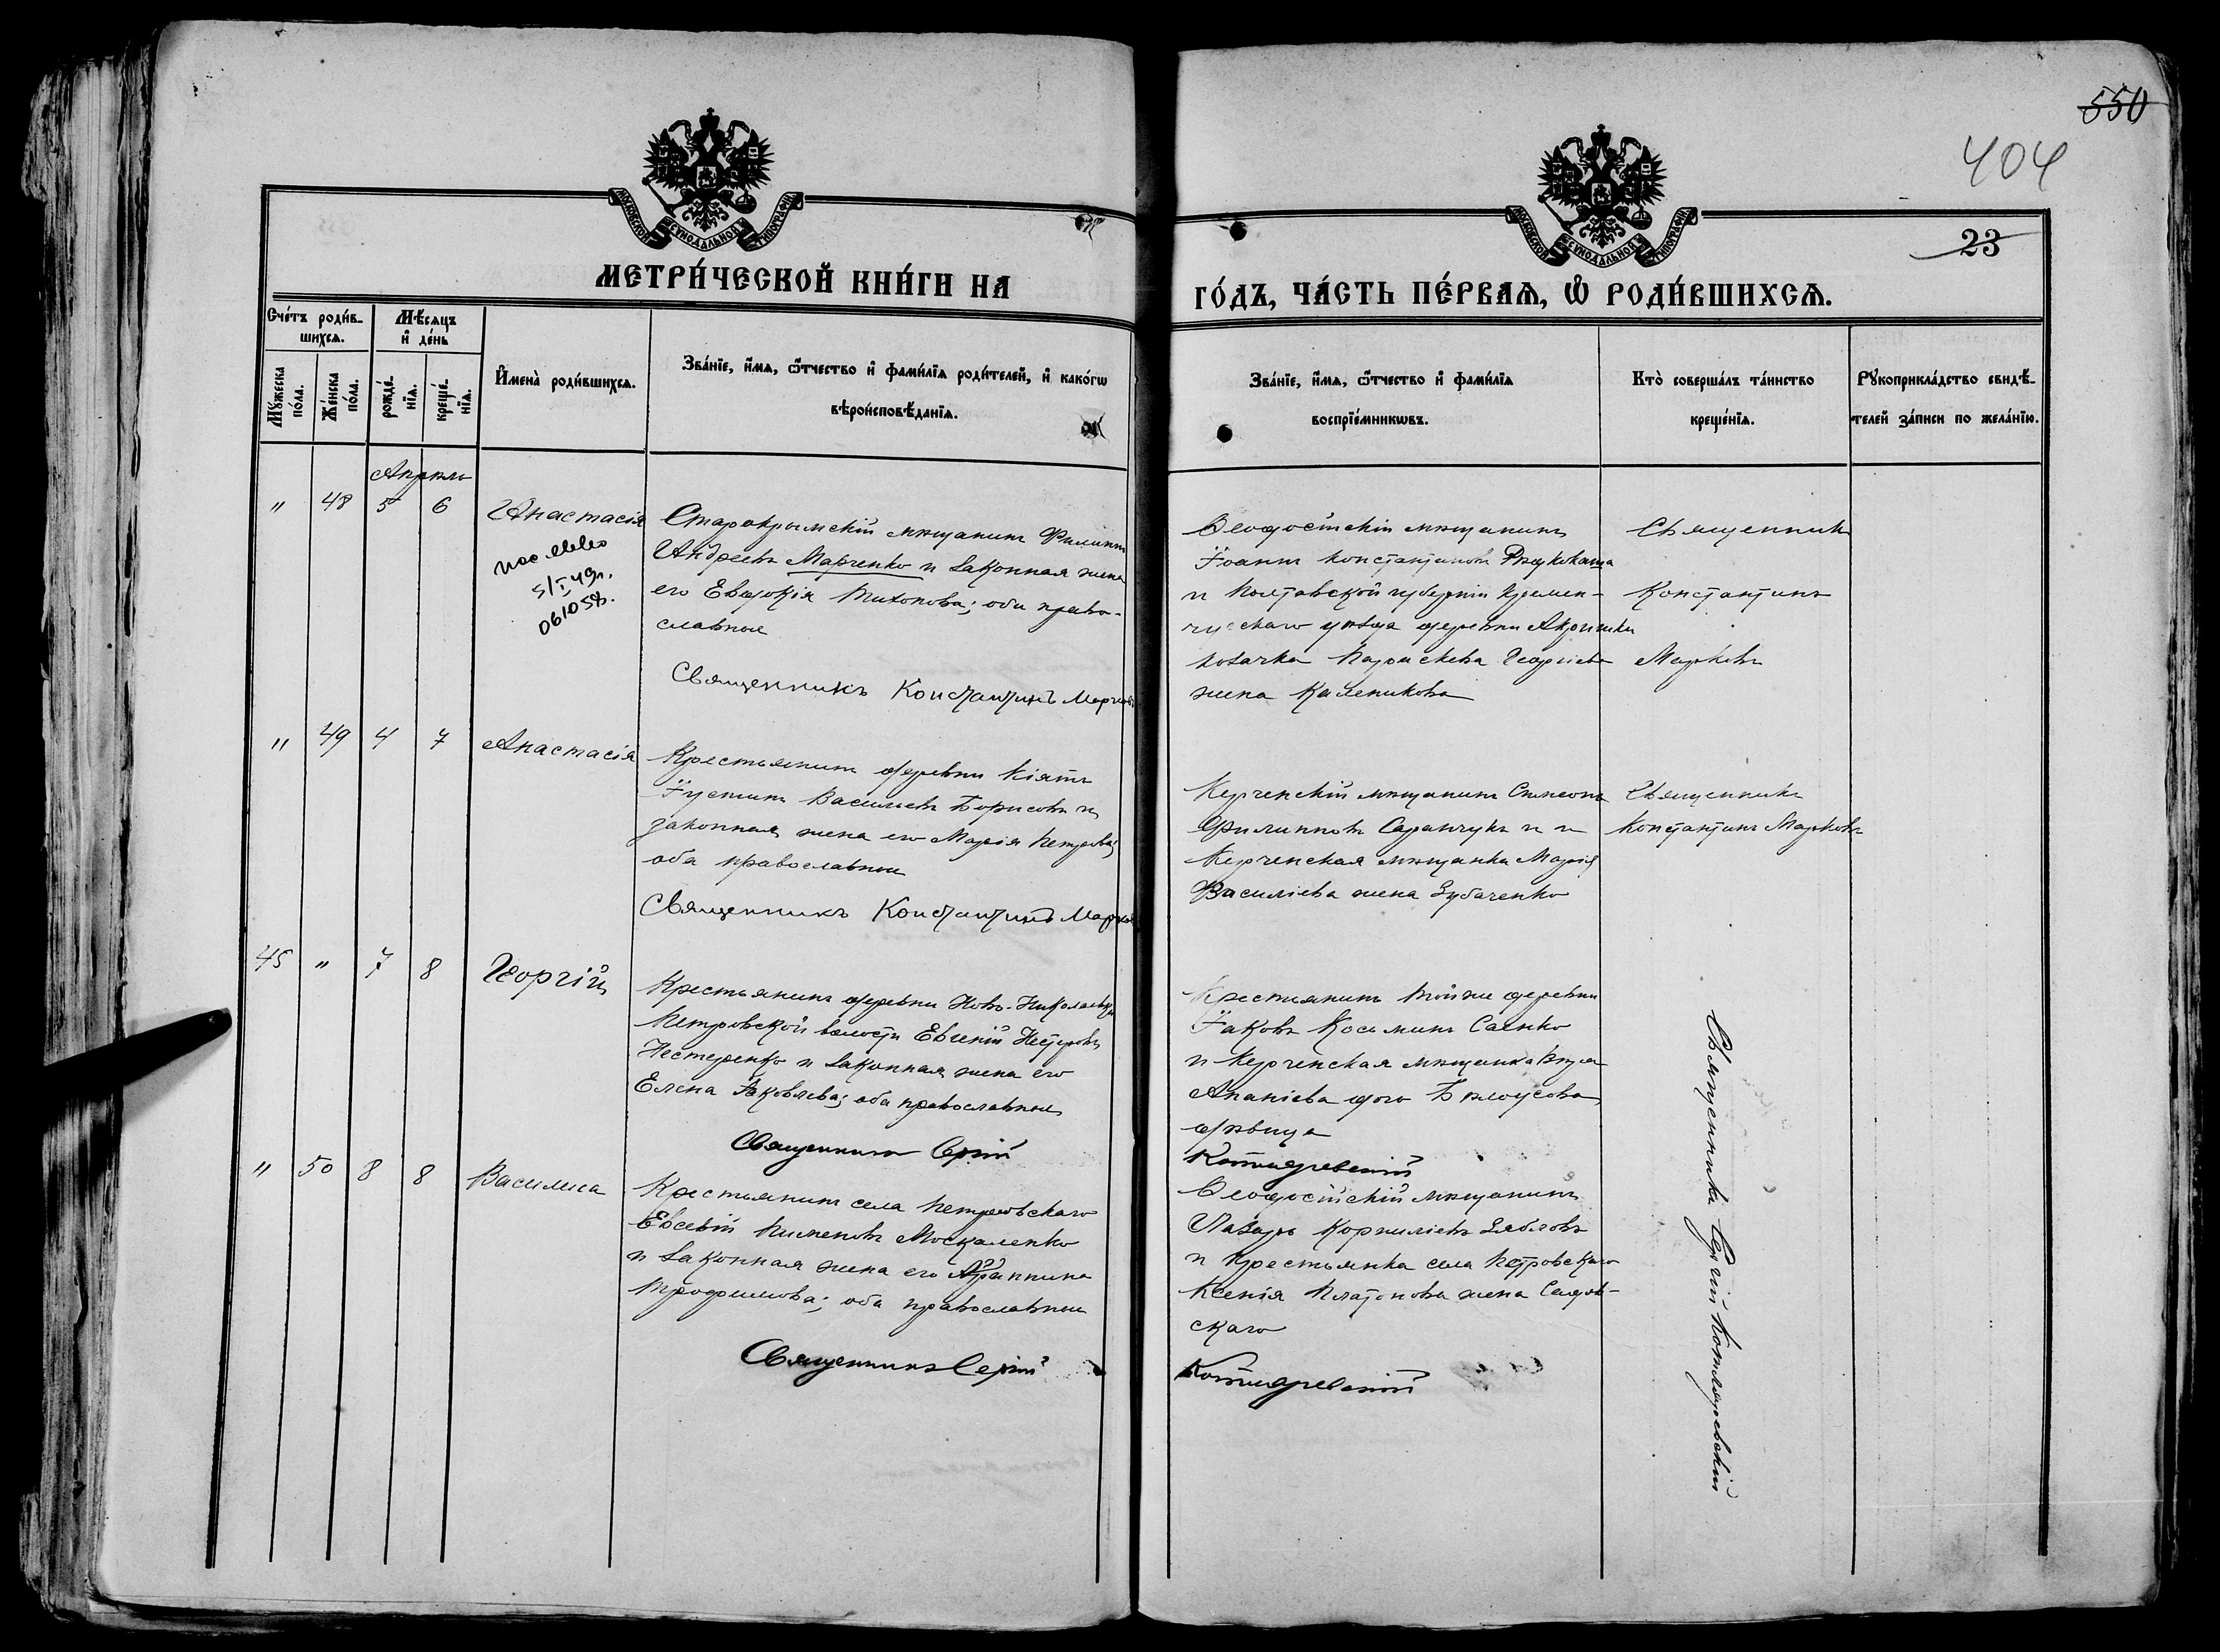 550
404
23
МОСКОВСКОЙ СѴНОДАЛЬНОЙ ТИПОГРАФІИ
МОСКОВСКОЙ СѴНОДАЛЬНОЙ ТИПОГРАФІИ
МЕТРИ́ЧЕСКОЙ КНИ́ГИ НА
ГО́ДЪ, ЧА́СТЬ ПЕ́РВАѦ, Ѡ҆ РОДИ́ВШИХСѦ.
Сче́тъ роди́в-
шихсѧ.
Мꙋ́жеска по́ла.
Же́нска по́ла.
Мѣ́сѧцъ
и҆ де́нь
рожде́-
нїѧ.
креще́-
нїѧ.
И҆мена̀ роди́вшихсѧ.
Зва́нїе, и҆́мѧ, ѻ҆́тчество и҆ фами́лїѧ роди́телей, и҆ како́гѡ
вѣроисповѣ́данїѧ.
Зва́нїе, и҆́мѧ, ѻ҆́тчество и҆ фами́лїѧ
воспрїе́мникѡвъ.
Кто̀ соверша́лъ та́инство
креще́нїѧ.
Рꙋкоприкла́дство свидѣ́-
телей за́писи по жела́нїю.
Апрѣль
" 48 5 6 Анастасія
5/I 49г.
Старокрымскій мѣщанинъ Филиппъ
Андреевъ Марченко и законная жена
его Евдокія Тихонова; оба право-
славные
Священникъ Константинъ Марковъ
Ѳеодосійскій мѣщанинъ
Іоаннъ Константиновъ
и Полтавской губерніи Кремен-
чугскаго уѣзда деревни
козачка Параскева Георгіева
жена Каленикова
Священникъ
Константинъ
Марковъ
" 49 4 7 Анастасія
Крестьянинъ деревни Кіятъ
Іустинъ Васильевъ Борисовъ и
законная жена его Марія Петрова;
оба православные
Священникъ Константинъ Марковъ
Керченскій мѣщанинъ Симеонъ
Филипповъ Саранчукъ и
Керченская мѣщанка Марія
Василіева жена Зубаченко
Священникъ
Константинъ Марковъ
45 " 7 8 Георгій
Крестьянинъ деревни Ново-Николаевки
Петровской волости Евгеній Несторовъ
Нестеренко и законная жена его
Елена Яковлева; оба православные
Священникъ Сергій
Котляревскій
Крестьянинъ той же деревни
Іаковъ Косьминъ Саенко
и Керченская мѣщанка Вѣра
Ананіева дочь Бѣлоусова,
дѣвица
" 50 8 8 Василиса
Крестьянинъ села Петровскаго
Евсевій Пименовъ Москаленко
и законная жена его Агриппина
Трофимова; оба православные
Священникъ Сергій
Котляревскій
Ѳеодосійскій мѣщанинъ
Лазарь Корниліевъ Зябловъ
и крестьянка села Петровскаго
Ксенія Платонова жена
скаго
Священникъ Сергій Котляревскій